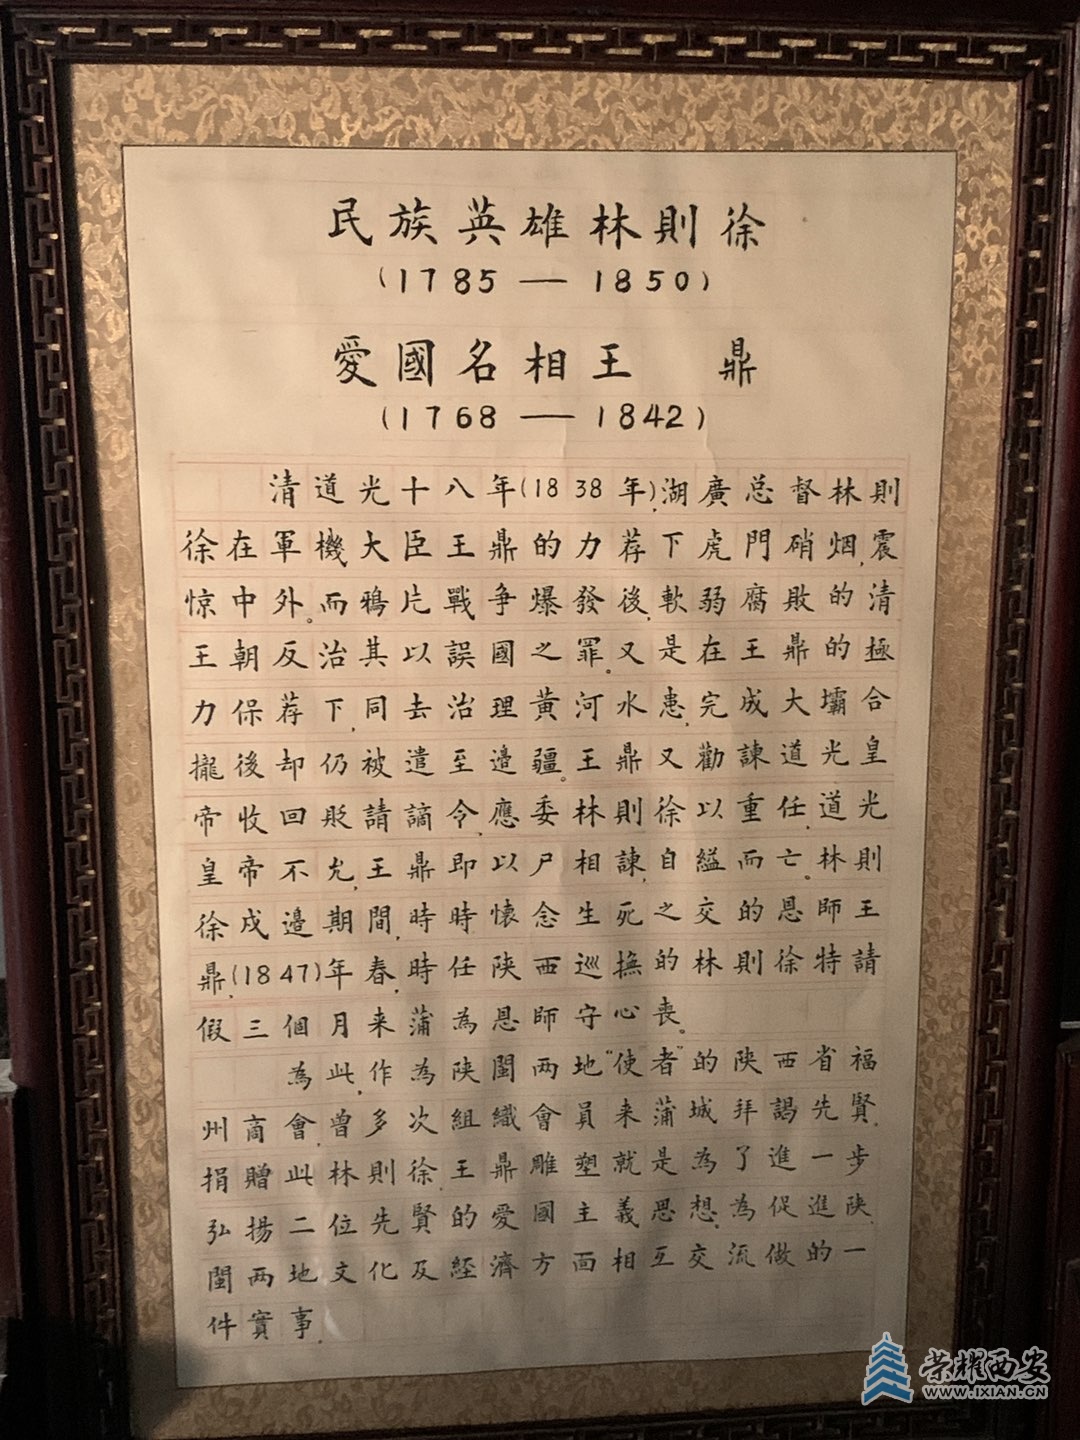 民族英雄林則徐
(1785 — 1850)
愛國名相王　鼎
(1768 — 1842)
清道光十八年(1838年),湖廣总督林則
徐在軍機大臣王鼎的力荐下虎門硝烟,震
惊中外。而鴉片戰争爆發後,軟弱腐敗的清
王朝反治其以誤國之罪。又是在王鼎的極
力保荐下,同去治理黄河水患,完成大壩合
攏後却仍被遣至邉疆。王鼎又勸諫道光皇
帝收回貶請謫令,應委林則徐以重任,道光
皇帝不允,王鼎即以尸相諫,自縊而亡。林則
徐戍邉期間,時時懷念生死之交的恩師王
鼎,(1847)年春,時任陕西巡撫的林則徐特請
假三個月来蒲為恩師守心丧。
為此,作為陕閩两地"使者"的陕西省福
州商會,曾多次組織會員来蒲城拜謁先賢,
捐贈此林則徐,王鼎雕塑就是為了進一步
弘揚二位先賢的愛國主義思想,為促進陕,
閩两地文化及経濟方面相互交流做的一
件實事.
荣耀西安
WWW.IXIAN.CN